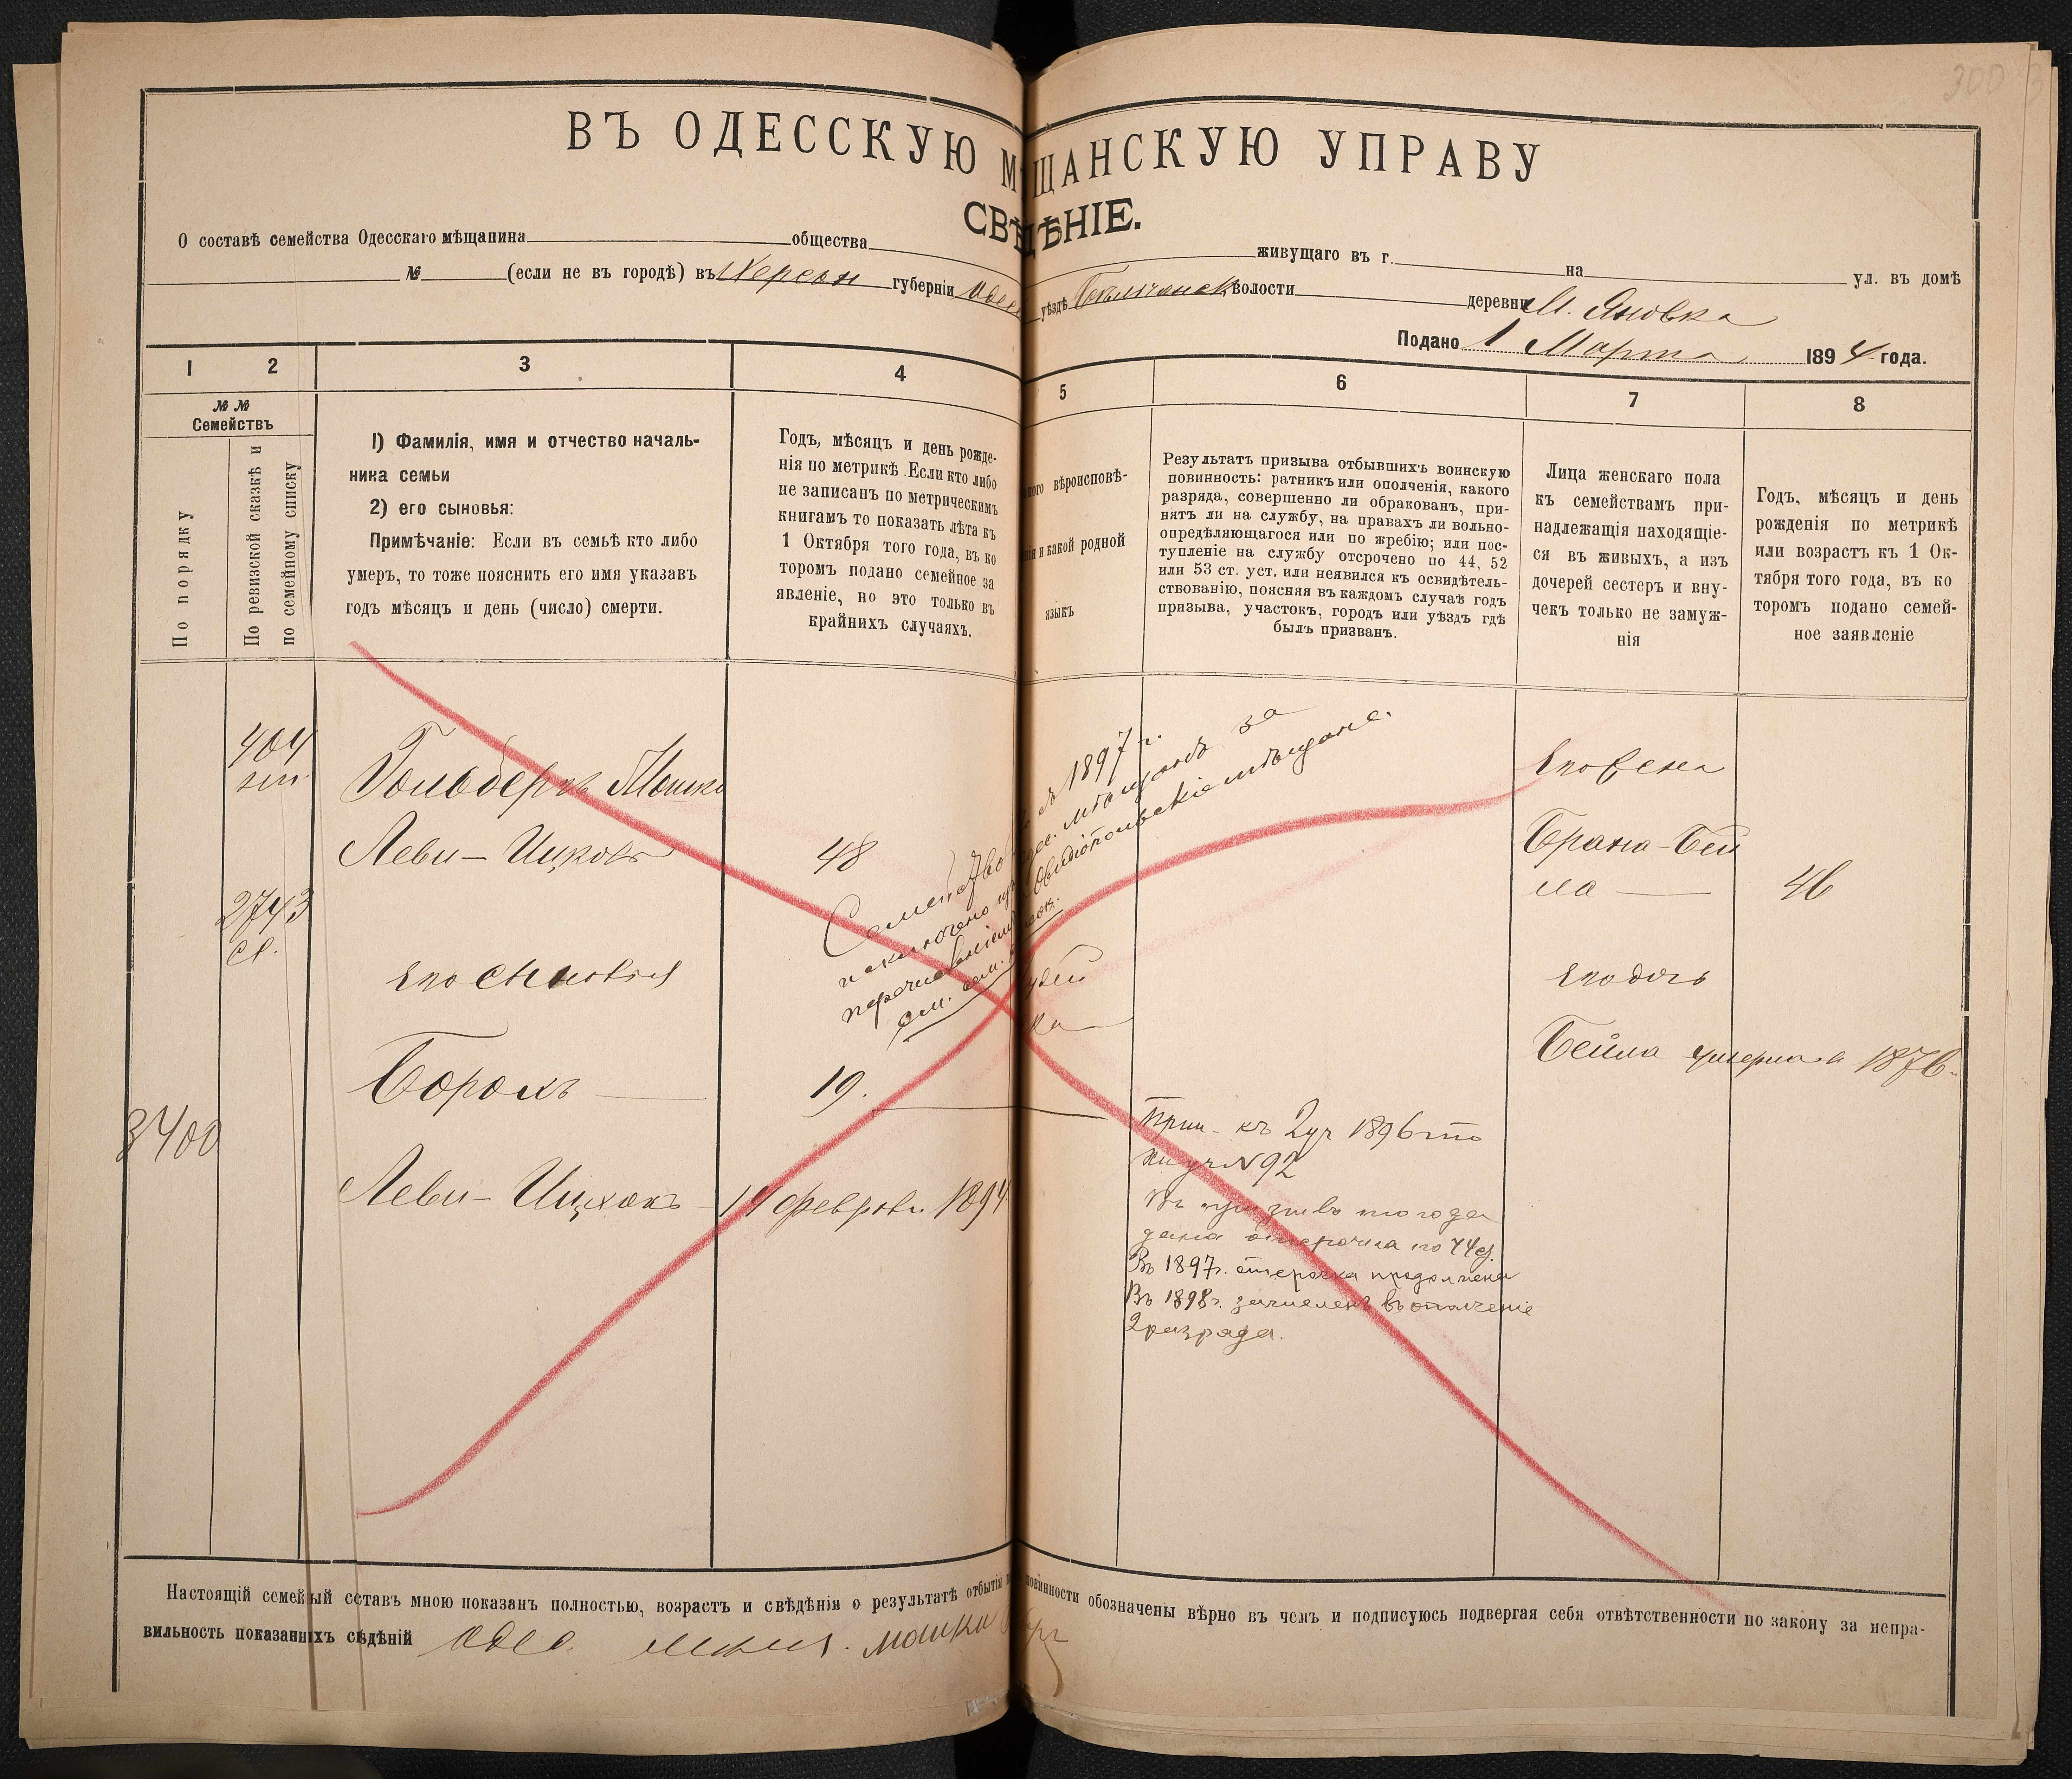 300
ВЪ ОДЕССКУЮ МѢЩАНСКУЮ УПРАВУ
СВѢДѢНІЕ.
О составѣ семейства Одесскаго мѣщанина общества живущаго въ г. на ул. въ домѣ
№ (если не въ городѣ) въ Херсон губерніи Одес уѣздѣ волости деревни М. Яновка
Подано 1 Марта 1894 года.
1 2 3 4 5 6 7 8
№ № Семействъ
По порядку
По ревизской сказкѣ и
по семейному списку
1) Фамилія, имя и отчество началь-
ника семьи
2) его сыновья:
Примѣчаніе: Если въ семьѣ кто либо
умеръ, то тоже пояснить его имя указавъ
годъ мѣсяцъ и день (число) смерти.
Годъ, мѣсяцъ и день рожде-
нія по метрикѣ. Если кто либо
не записанъ по метрическимъ
книгамъ то показать лѣта къ
1 Октября того года, въ ко
торомъ подано семейное за
явленіе, но это только въ
крайнихъ случаяхъ.
вѣроисповѣ-
и какой родной
языкъ
Результатъ призыва отбывшихъ воинскую
повинность: ратникъ или ополченія, какого
разряда, совершенно ли обракованъ, при-
нятъ ли на службу, на правахъ ли вольно-
опредѣляющагося или по жребію; или пос-
тупленіе на службу отсрочено по 44, 52
или 53 ст. уст. или неявился къ освидѣтель-
ствованію, поясняя въ каждомъ случаѣ годъ
призыва, участокъ, городъ или уѣздъ гдѣ
былъ призванъ.
Лица женскаго пола
къ семействамъ при-
надлежащія находящіе-
ся въ живыхъ, а изъ
дочерей сестеръ и вну-
чекъ только не замуж-
нія
Годъ, мѣсяцъ и день
рожденія по метрикѣ
или возрастъ къ 1 Ок-
тября того года, въ ко
торомъ подано семей-
ное заявленіе
404
Гольдбергъ Мошко
Леви-Ицковъ 48
2743
сп.
Его сыновья
Борохъ 19.
3400
Леви-Ицхокъ 14 февраля 1894
Семейство съ 1897 г.
исключено изъ Одес. мѣщанъ за
перечисленіемъ въ Овидіопольскіе мѣщане.
Его жена
Брана-Бей
ла 46
Его дочь
Бейла умерла въ 1876.
Прип. къ 2 уч 1896 по
уч №92
Въ призывъ того года
дана отсрочка по 44 ст.
Въ 1897г. отсрочка продолжена
Въ 1898г. зачисленъ въ ополченіе
2 разряда.
Настоящій семейный составъ мною показанъ полностью, возрастъ и свѣдѣнія о результатѣ отбытія повинности обозначены вѣрно въ чемъ и подписуюсь подвергая себя отвѣтственности по закону за непра-
вильность показанныхъ свѣдѣній Одес. мѣщ. Мошко